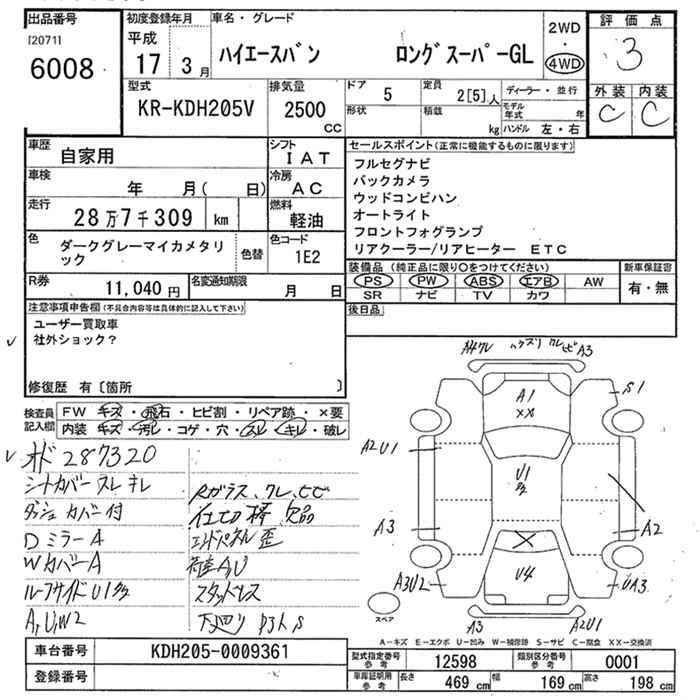 出品番号
[20711
6008
初度登録年月
平成
17 3 月
車名・グレード
ハイエースバン ロングスーパーGL
2WD
・
4WD
評価点
3
外装 内装
C C
型式
KR-KDH205V
排気量
2500
CC
ドア 5
形状
定員 2[5]人
積載 kg
ディーラー・並行
モデル年式 年
ハンドル 左・右
車歴
自家用
シフト
IAT
車検
年 月( 日)
冷房
AC
走行
28万7千309 km
燃料
軽油
色
ダークグレーマイカメタリ
ック
色替
色コード
1E2
セールスポイント(正常に機能するものに限ります)
フルセグナビ
バックカメラ
ウッドコンビハン
オートライト
フロントフォグランプ
リアクーラー/リアヒーター ETC
R券
11,040 円
名変通知期限
月 日
装備品 (純正品に限り○をつけてください)
PS PW ABS エアB AW
SR ナビ TV カワ
新車保証書
有・無
注意事項申告欄(不具合内容等は具体的に記入して下さい)
ユーザー買取車
社外ショック?
後日品
修復歴 有〔箇所 〕
検査員
記入欄
FW キズ・飛石・ヒビ割・リペア跡・×要
内装 キズ・汚レ・コゲ・穴・スレ・キレ・破レ
オド 287320
シートカバー スレ キレ
ダッシュカバー付
Dミラー A
WカバーA
ルーフサイド U1多
A,U,W2
Rガラス、ワレ、ヒビ
欠品
エンドパネル歪
荷室A,U
スタッドレス
下廻り
A4ワレ ワレ ヒビ A3
A1
XX
S1
A2U1
U1
多
A3
A2
A3U2
U4
UA3
スペア
A3
A2U1
A-キズ E-エクボ U-凹み W-補修跡 S-サビ C-腐食 XX-交換済
車台番号
KDH205-0009361
登録番号
型式指定番号
参考
12598
類別区分番号
参考
0001
車庫証明用
参考
長さ 469 cm
幅 169 cm
高さ 198 cm